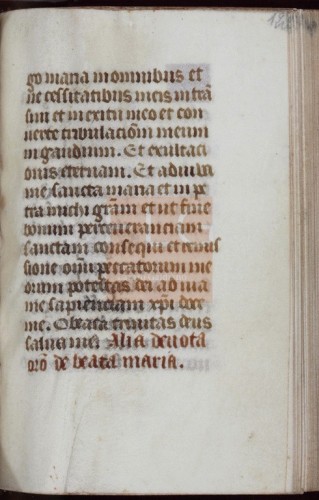 go maria in omnibus et
ne cessitatibus meis in trā
situ et in exitu meo et con
uerte tribulacionē meam
in gaudium. Et exultaci
onis eternam. Et adiuua
me sancta maria et in pe
tra michi grām et ut
bonum perseueranciam
sanctam consequi et remis
sione om̄ peccatorum me
orum potestas dei ad iuua
me sapienciam xp̄i doce
me. O beata trinitas deus
Alia deuota
orō de beata maria.